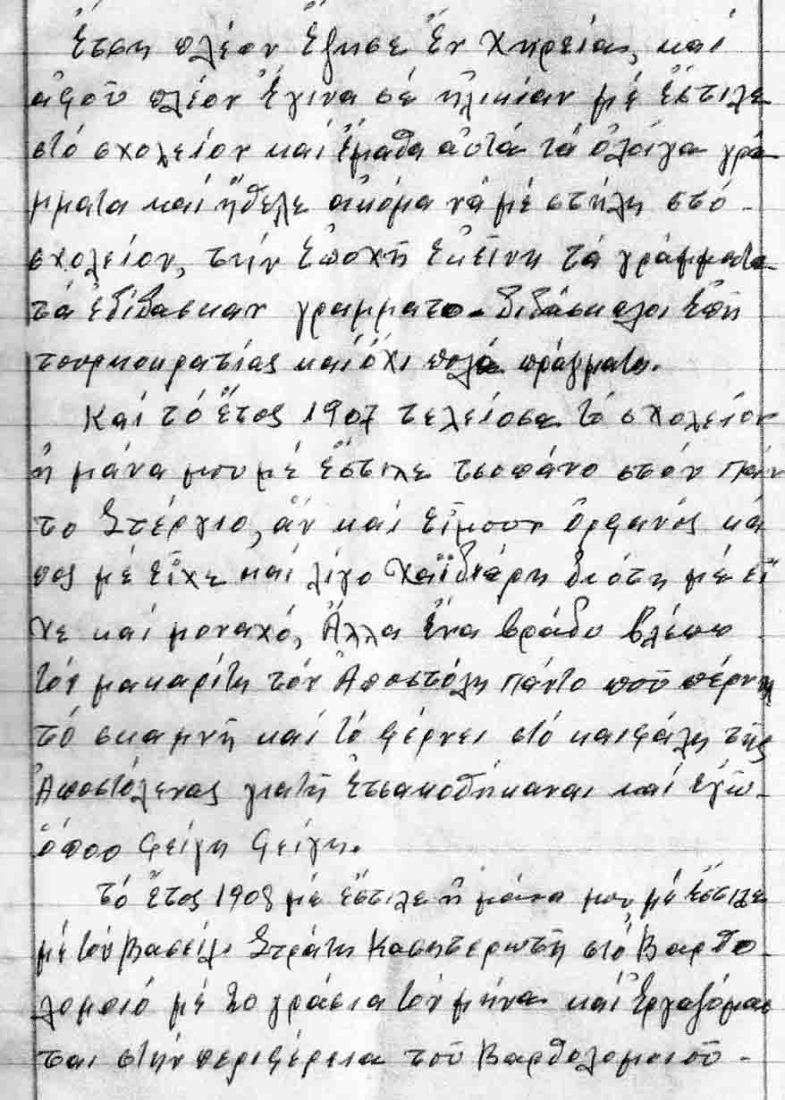 Ἔτση πλέον ἔζησε ἐν χηρείας, καί
ἀφοῦ πλέον ἔγινα σέ ἡλικίαν μέ ἔστιλε
στό σχολεῖον καί ἔμαθα αὐτά τά ὀλοίγα γρά
μματα καί ἤθελε ἀκόμα νά μέ στήλη στό-
σχολεῖον, τήν ἐποχῆ ἐκεῖνη τά γράμματα
τά ἐδίδασκαν γραμματο-διδάσκαλοι ἐπῆ
τουρκοκρατίας καί ὄχι πολά πράγματα.
Καί τό ἔτος 1907 τελείοσα τό σχολεῖον
ἡ μάνα μου μέ ἔστιλε τσοπάνο στόν Πάν
το Στέργιο, ἄν καί εἴμουν ὀρφανός κά
πος μέ εἶχε καί λίγο χαϊδιάρη διότη μέ εἴ
χε καί μοναχό, Ἄλλα ἕνα βράδυ βλέπω
τόν μακαρίτη τόν Ἀποστόλη Πάντο ποῦ πέρνη
τό σκαμνῆ καί τό φέρνει στό καιφάλη τῆς
Ἀποστόλενας γιατῆ ἐτσακοθήκαναι καί ἐγώ-
ὅπου φείγη φείγη.
τό ἔτος 1908 μέ ἔστιλε ἡ μάνα μου μέ ἔστιλε
μέ τόν Βασίλ. Στράτη Κασητερωτῆ στό Βαρθο
λομοιό μέ 20 γράσια τόν μήνα καί ἐργαζόμασ
ται στήν περιφέρεια τοῦ Βαρθολομοιοῦ-